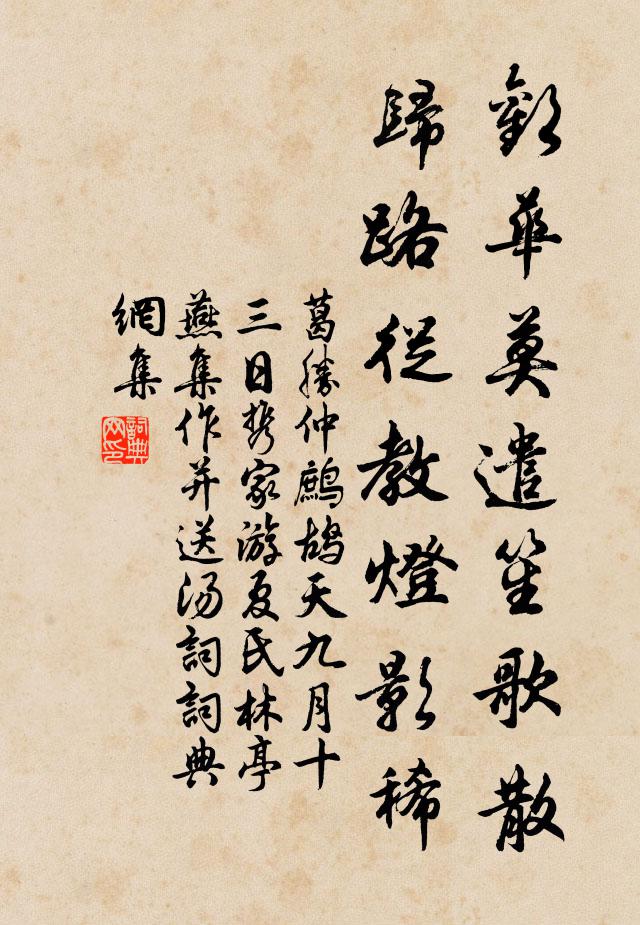 歡華莫遣笙歌散
歸路從教燈影稀
葛勝仲鷓鴣天九月十
三日攜家游夏氏林亭
燕集作并送湯詞詞典
網集
詞典
网印